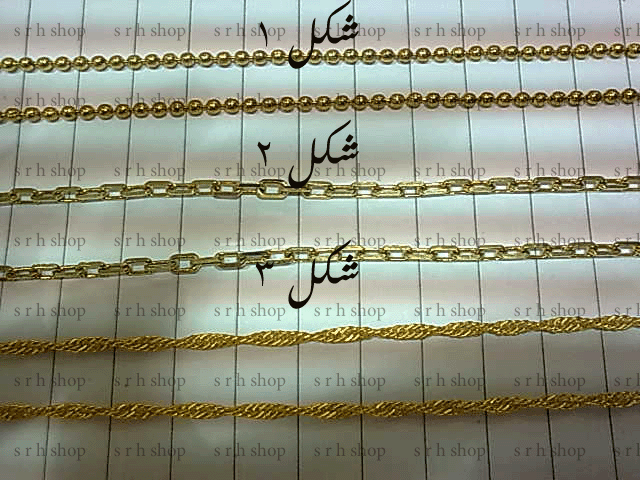 شکل ۱
s r h shop s r h shop s r h shop s r h shop s r h shop s r h shop
s r h shop s r h shop s r h shop s r h shop s r h shop s r h shop
شکل ۲
s r h shop s r h shop s r h shop s r h shop s r h shop s r h shop
s r h shop s r h shop s r h shop s r h shop s r h shop s r h shop
شکل ۳
s r h shop s r h shop s r h shop s r h shop s r h shop s r h shop
s r h shop s r h shop s r h shop s r h shop s r h shop s r h shop
s r h shop s r h shop s r h shop s r h shop s r h shop s r h shop